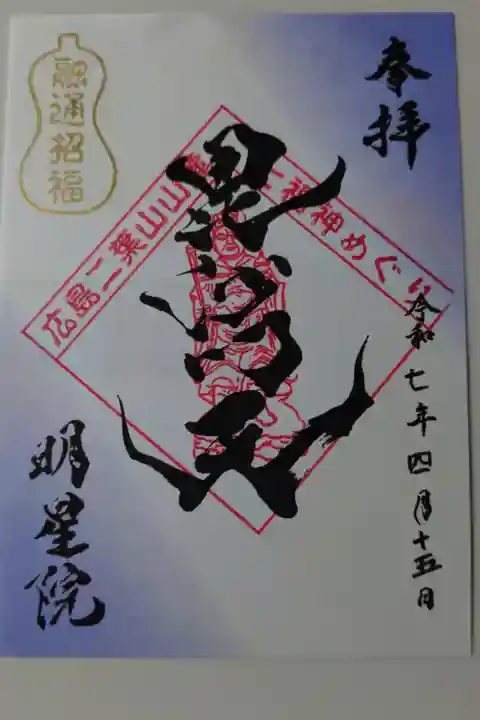 奉拝
融通招福
広島二葉山山麓七福神めぐり
毘沙門天
令和七年四月十五日
明星院